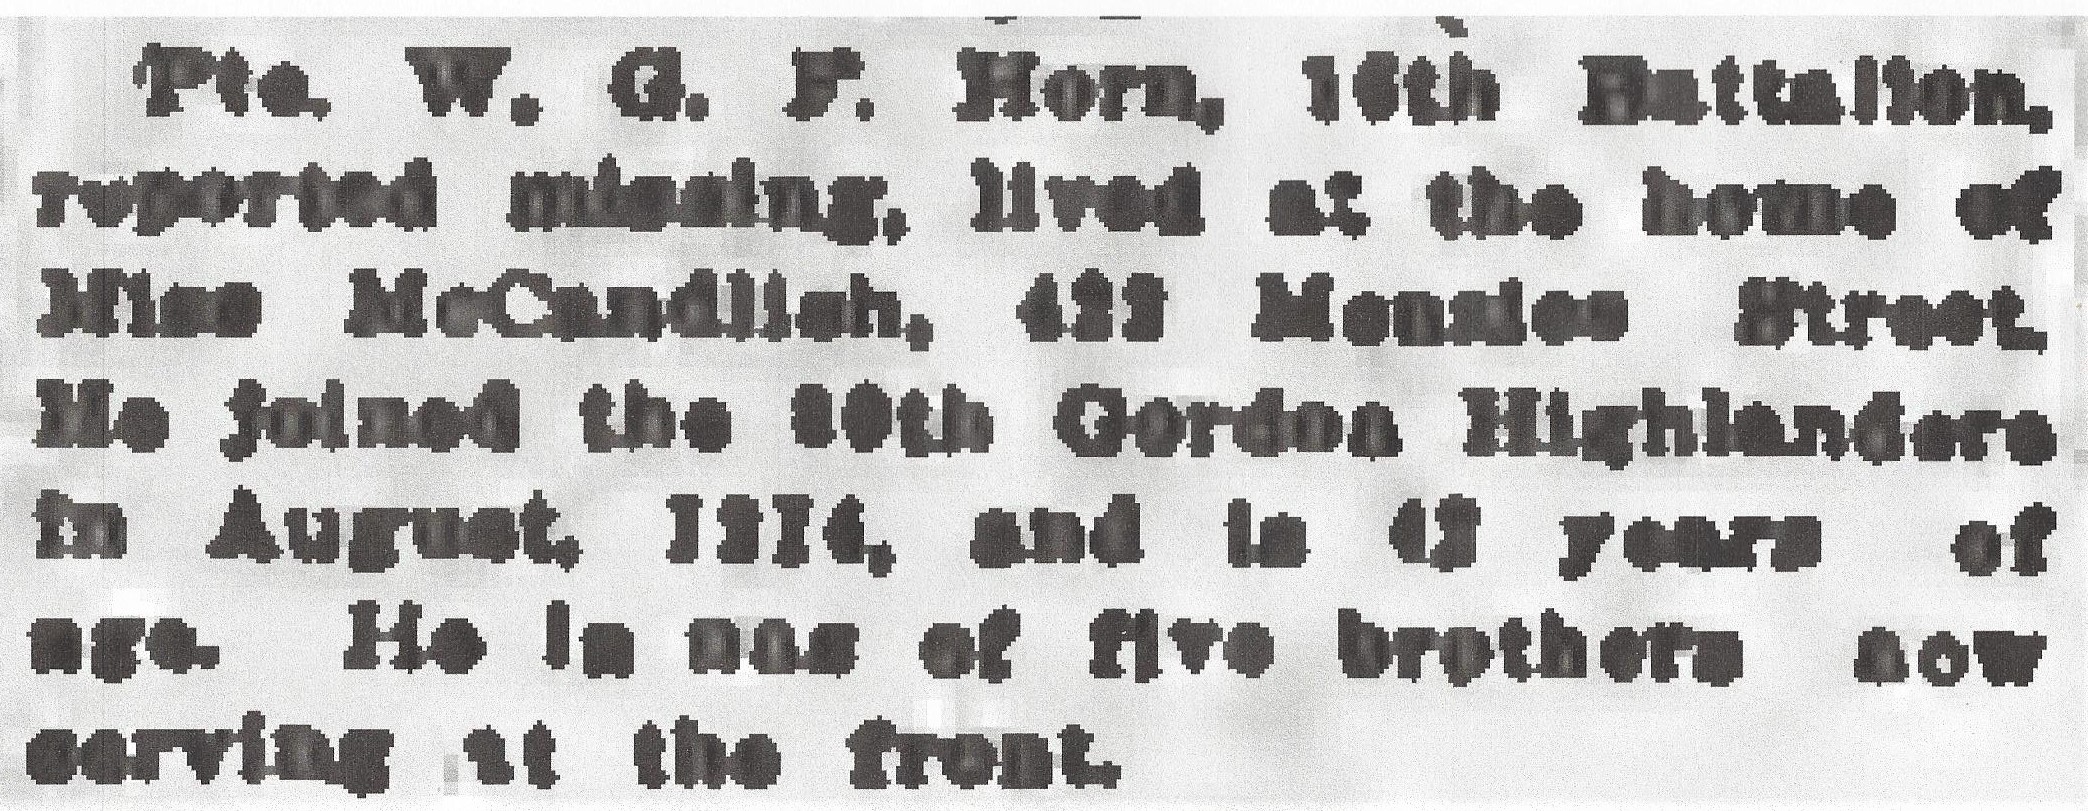 Pte. W. G. F. Horn, 16th Battalion,
reported missing, lived at the home of
Miss McCandlish, Street.
He joined the Gordon Highlanders
in August, 1914, and is years of
age. He is one of five brothers now
serving at the front.